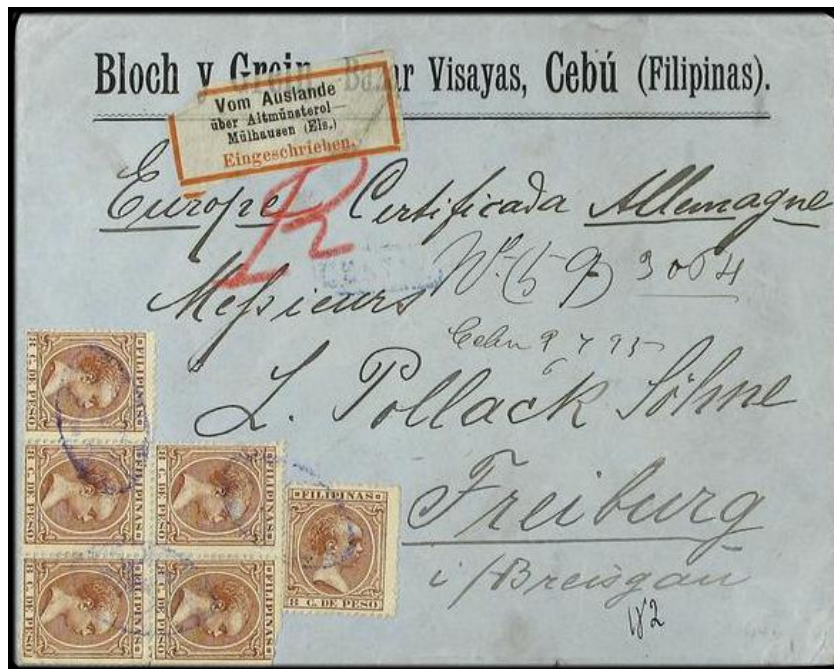 Bloch y Grein Bazar Visayas, Cebú (Filipinas).
Vom Auslande
über Altmünsterol—
Mülhausen (Els.)
Eingeschrieben.
R
Europe Certificada Allemagne
Messieurs
3064
Cebu
L. Pollack Söhne
Freiburg
i/Breisgau
182
FILIPINAS
8 C. DE PESO
FILIPINAS
8 C. DE PESO
FILIPINAS
8 C. DE PESO
FILIPINAS
8 C. DE PESO
FILIPINAS
8 C. DE PESO
FILIPINAS
8 C. DE PESO